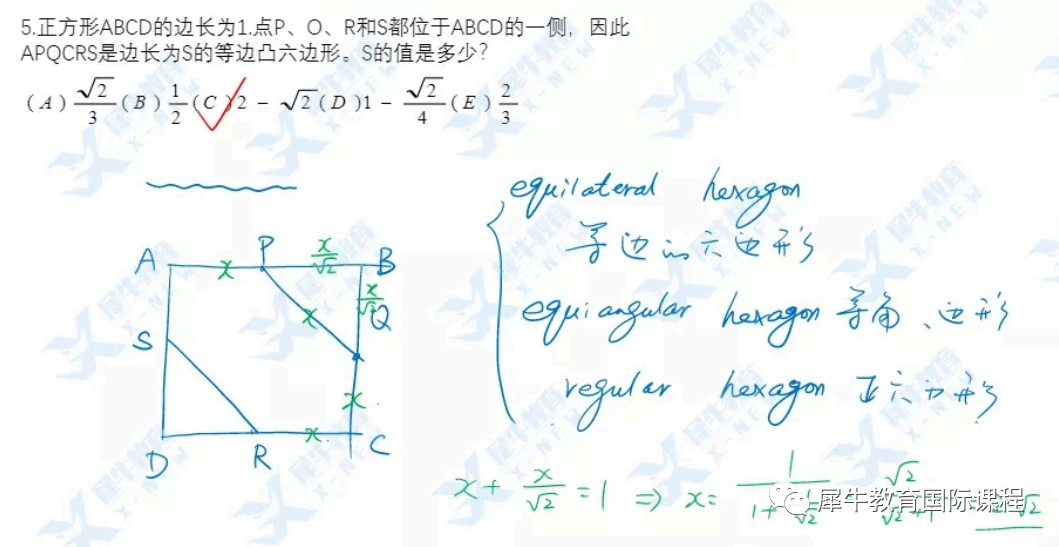 5.正方形ABCD的边长为1.点P、O、R和S都位于ABCD的一侧，因此
APQCRS是边长为S的等边凸六边形。S的值是多少?
(A) √2/3 (B) 1/2 (C) 2 - √2 (D) 1 - √2/4 (E) 2/3
equilateral hexagon
等边的六边形
equiangular hexagon 等角六边形
regular hexagon 正六边形
A x P x/√2 B
x/√2
S x Q
x
D R x C
x + x/√2 = 1 ⇒ x = 1/(1+1/√2) = √2/(√2+1) = 2-√2
犀牛教育国际课程